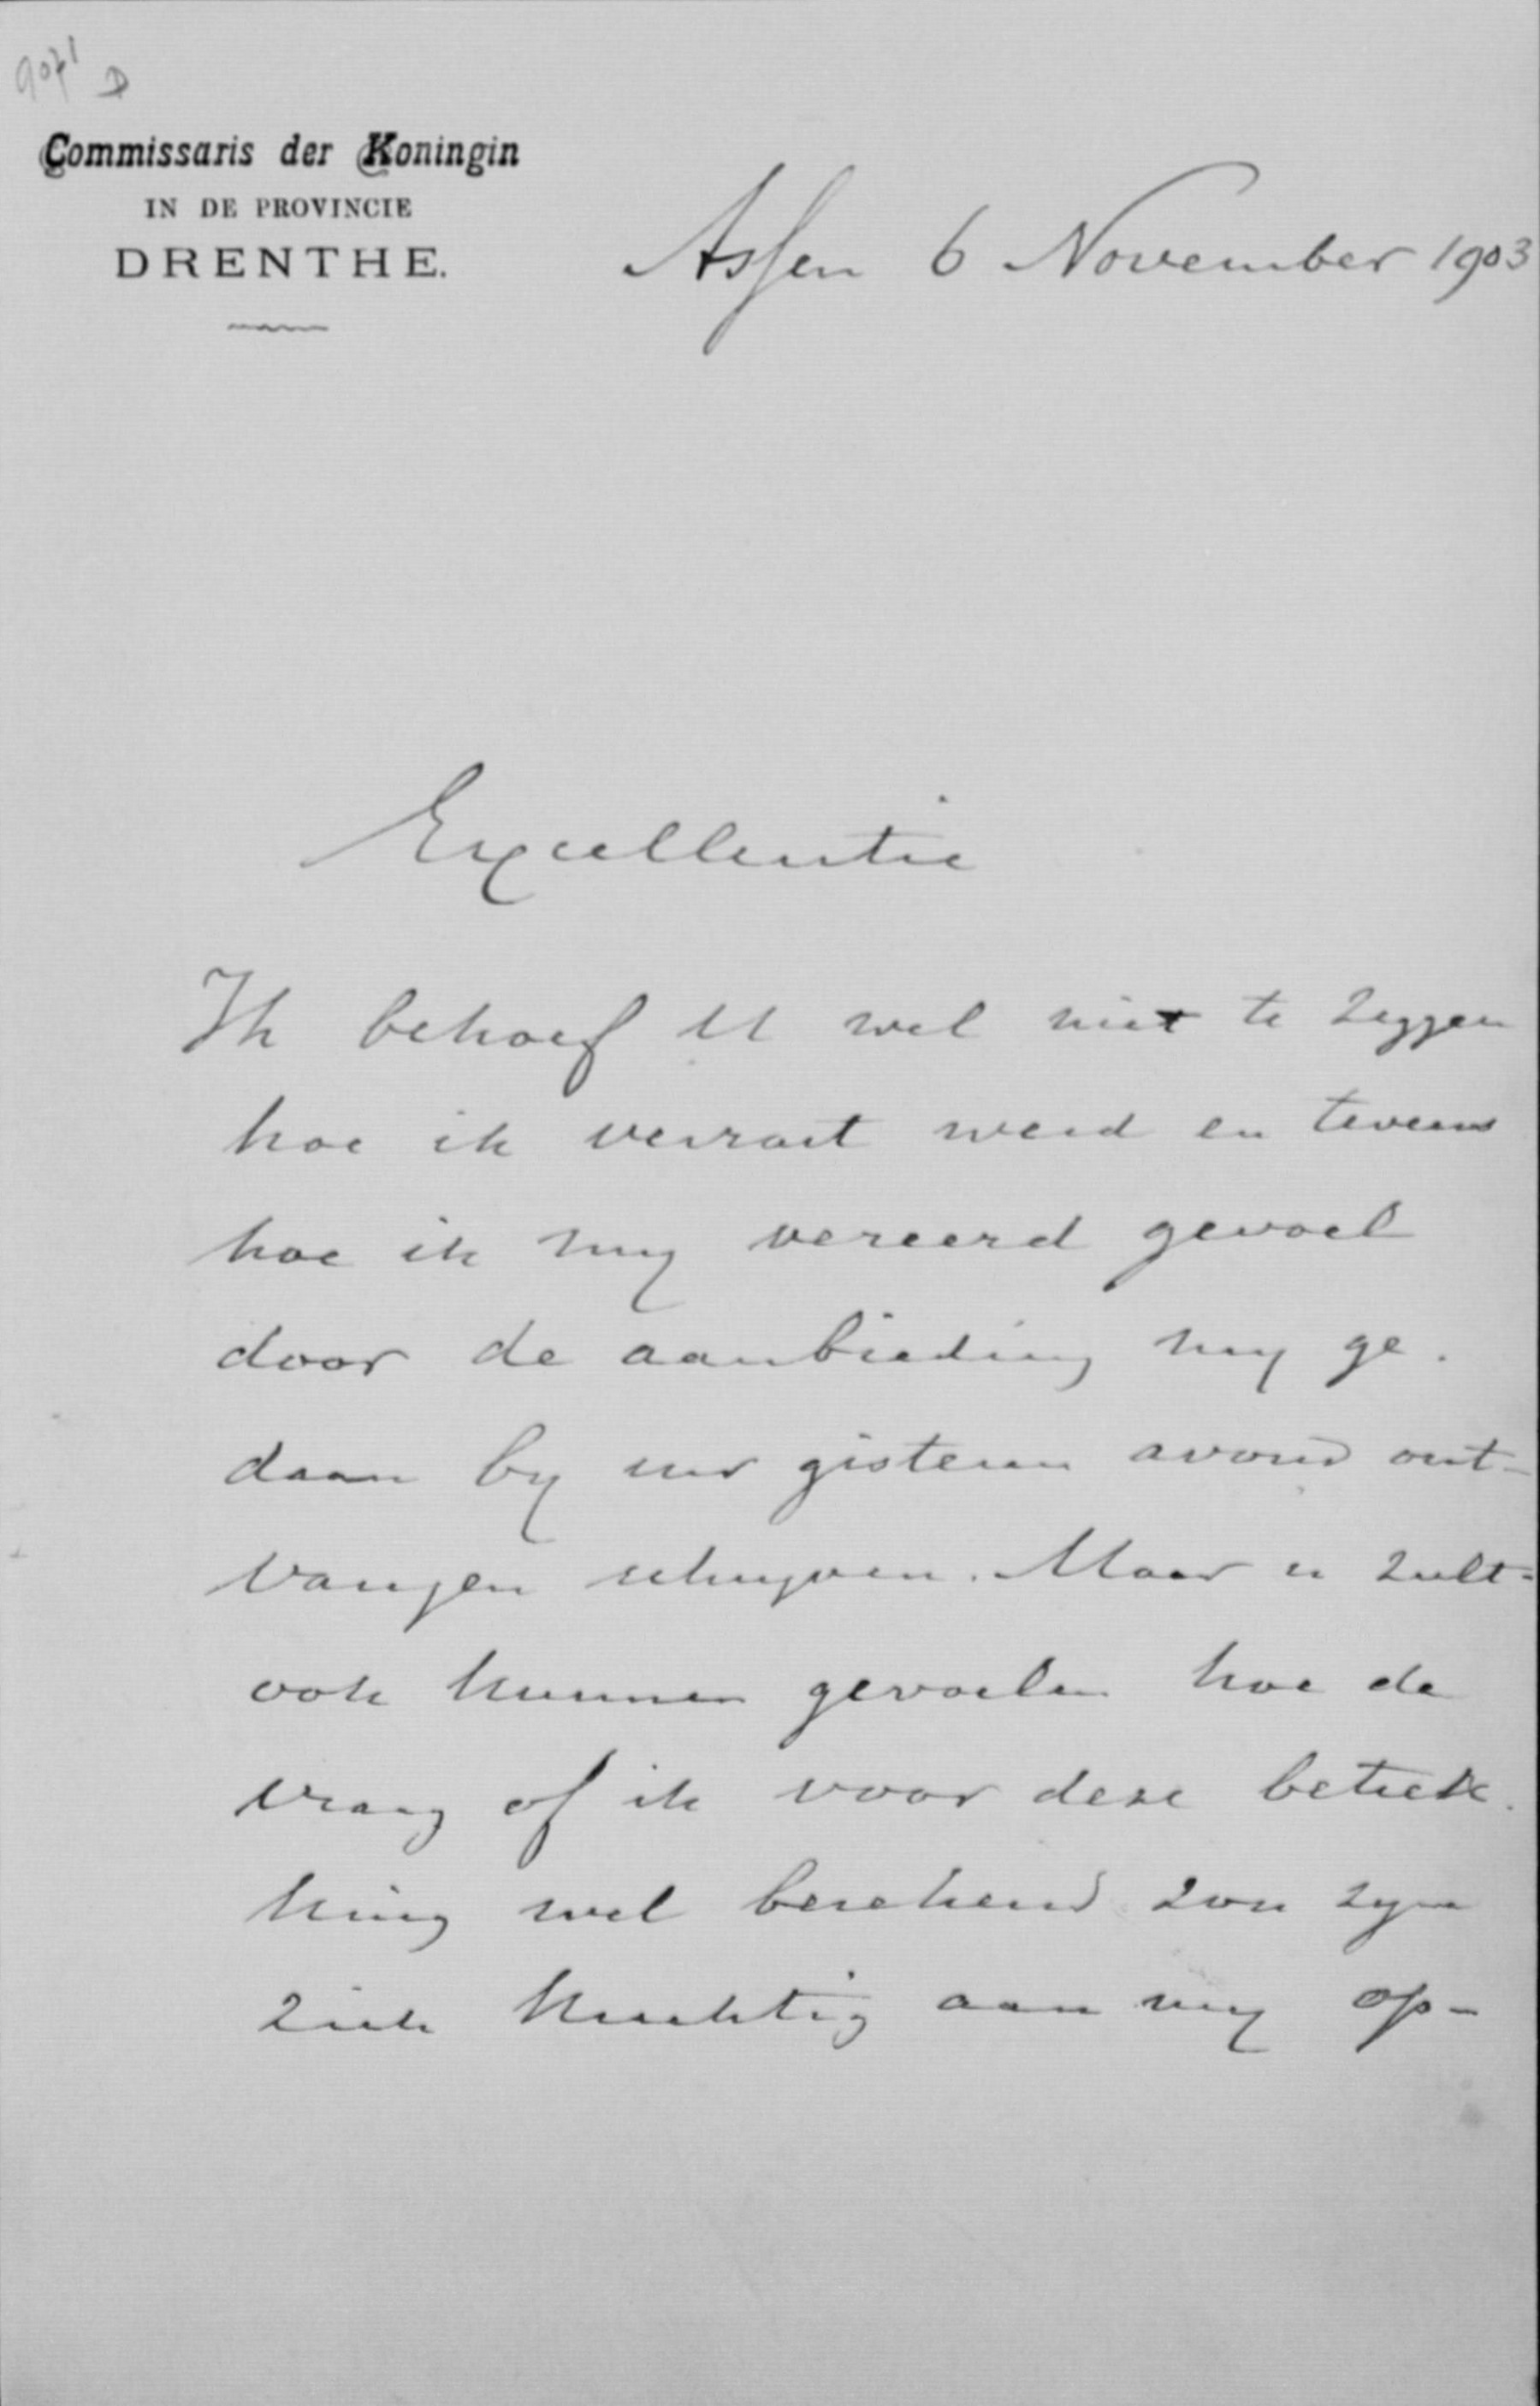 Commissaris der Koningin
IN DE PROVINCIE
DRENTHE.
Assen 6 November 1903
Excellentie
Ik behoef U wel niet te zeggen
hoe ik verrast werd en tevens
hoe ik my vereerd gevoel
door de aanbieding my ge-
daan by uw gisteren avond ont-
vangen schryven. Maar u zult
ook kunnen gevoelen hoe de
vraag of ik voor deze betrek-
king wel berekend zou zyn
zich krachtig aan my op-